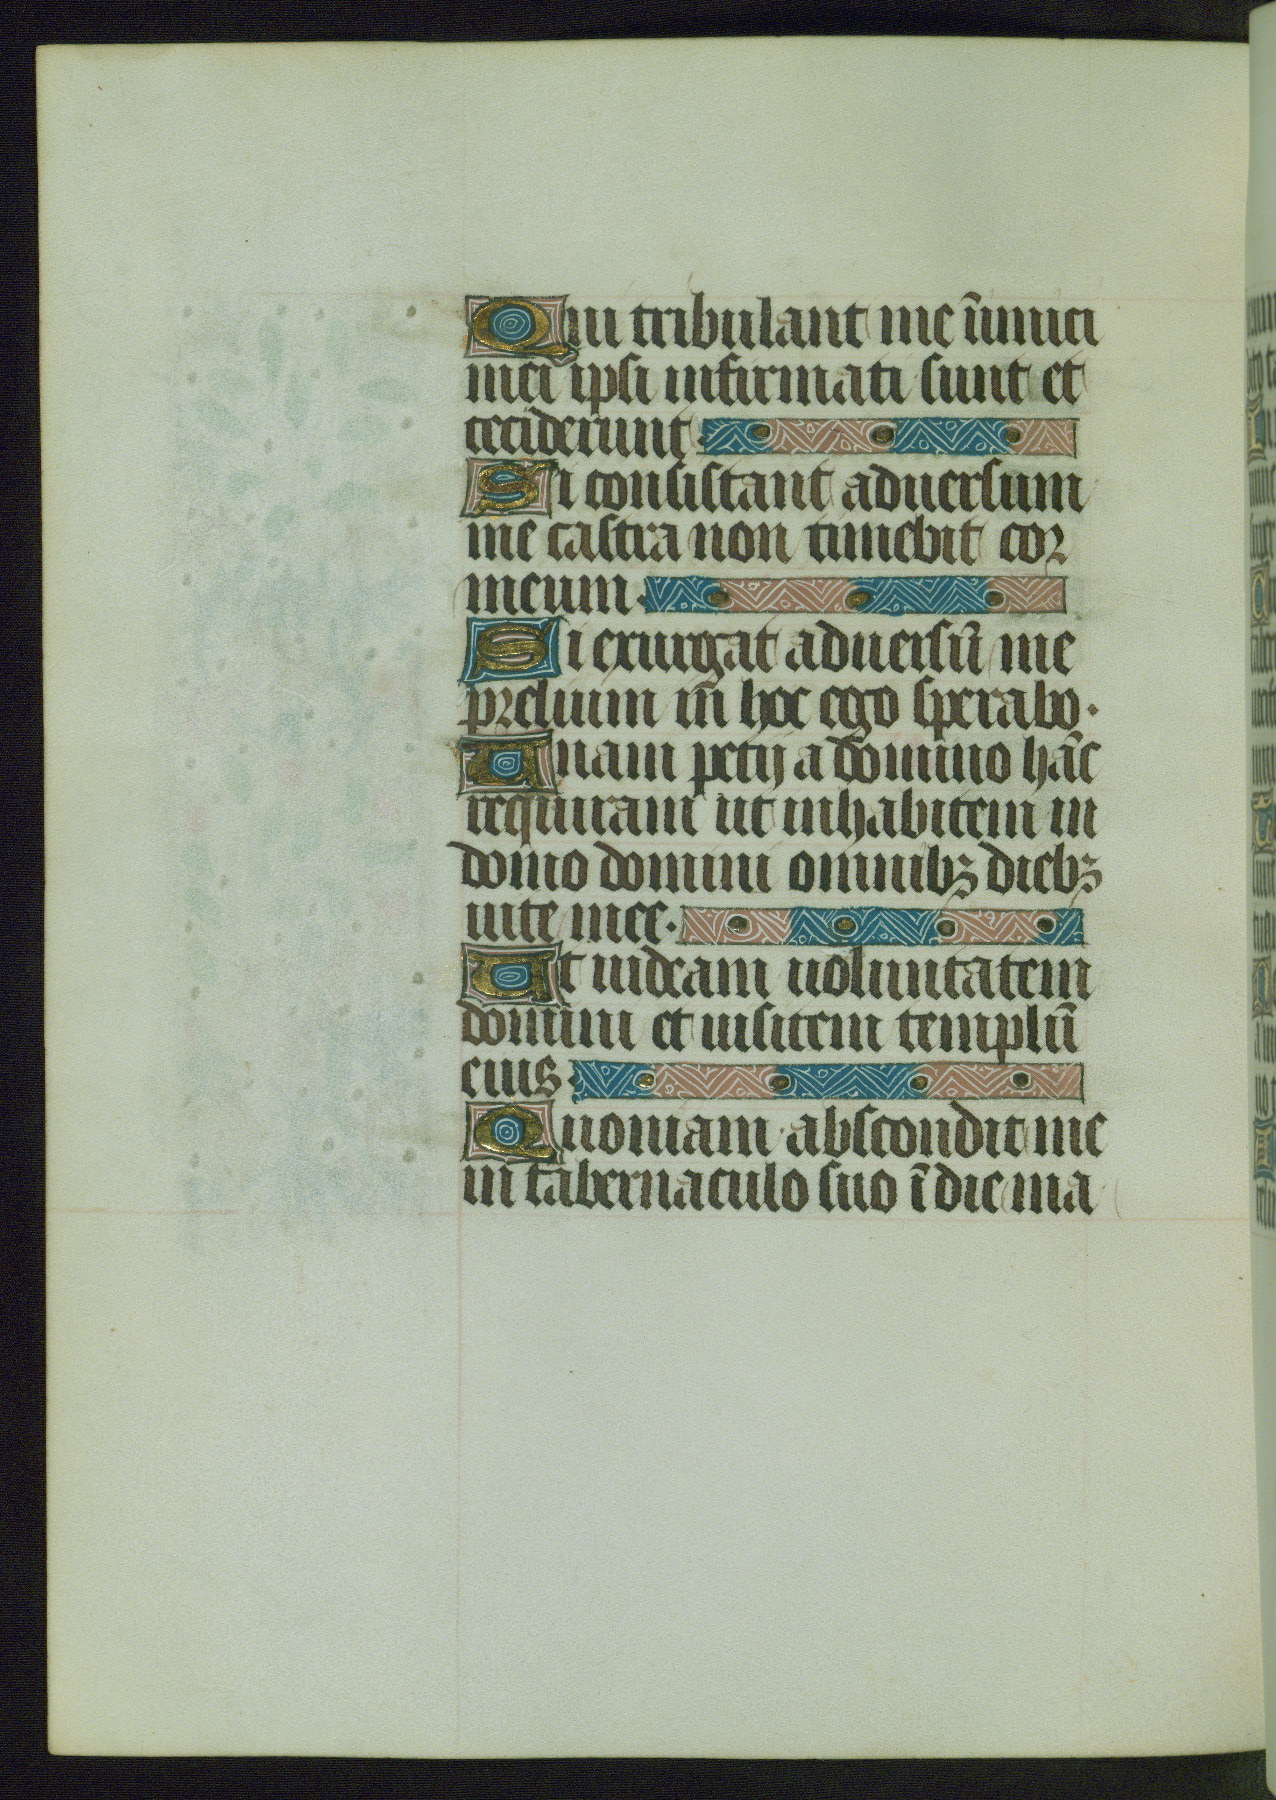 Qui tribulant me īimici
mei ipsi infirmati sunt et
ceciderunt
Si consistant aduersum
me castra non timebit cor
meum
Si exurgat aduersū me
prelium in̄ hoc ego sperabo·
Unam petij a domino hāc
requiram ut inhabitem in
domo domini omnibꝫ diebꝫ
uite mee·
Ut uideam uoluntatem
domini et uisitem templū
eius
Quoniam abscondit me
in tabernaculo suo ī die ma